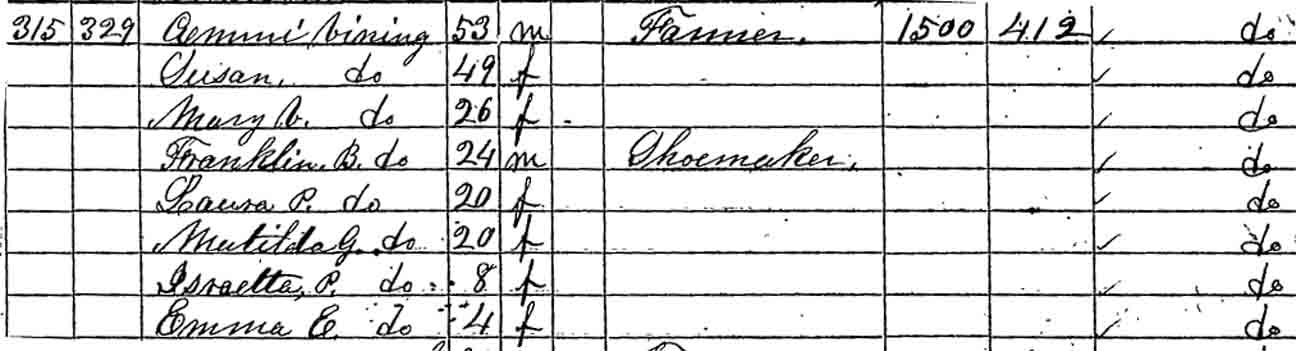 315 329 Gemmi Vining 53 m Farmer. 1500 412 ✓ do
Susan, do 49 f ✓ do
Mary V. do 26 f ✓ do
Franklin. B. do 24 m Shoemaker, ✓ do
Laura P. do 20 f ✓ do
Matilda G. do 20 f ✓ do
Israetta, P. do 8 f ✓ do
Emma E. do 4 f ✓ do